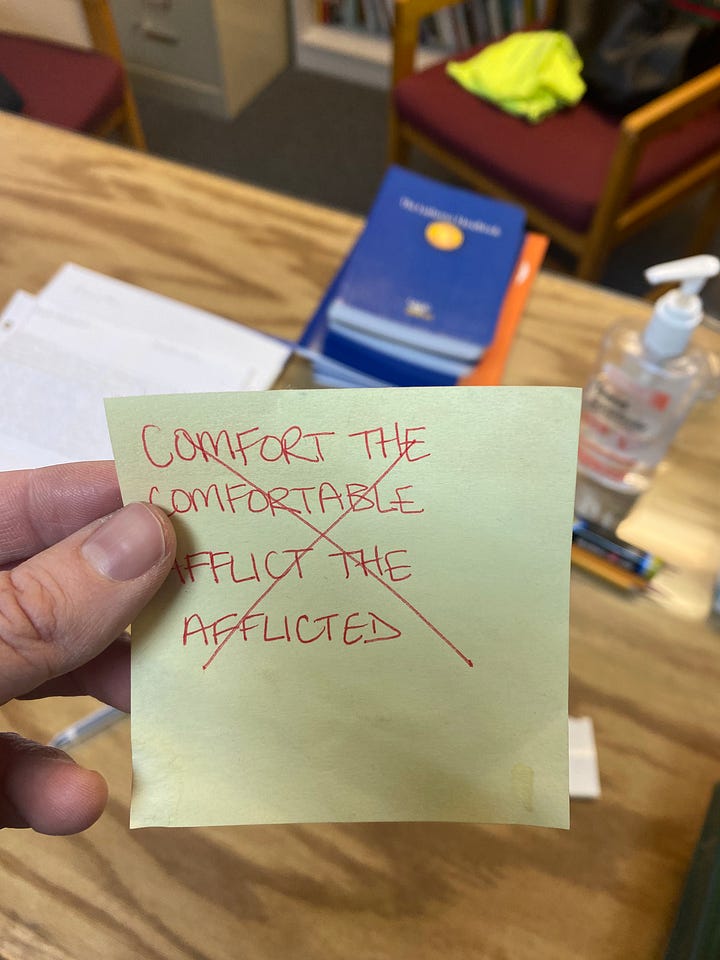 COMFORT THE
COMFORTABLE
AFFLICT THE
AFFLICTED